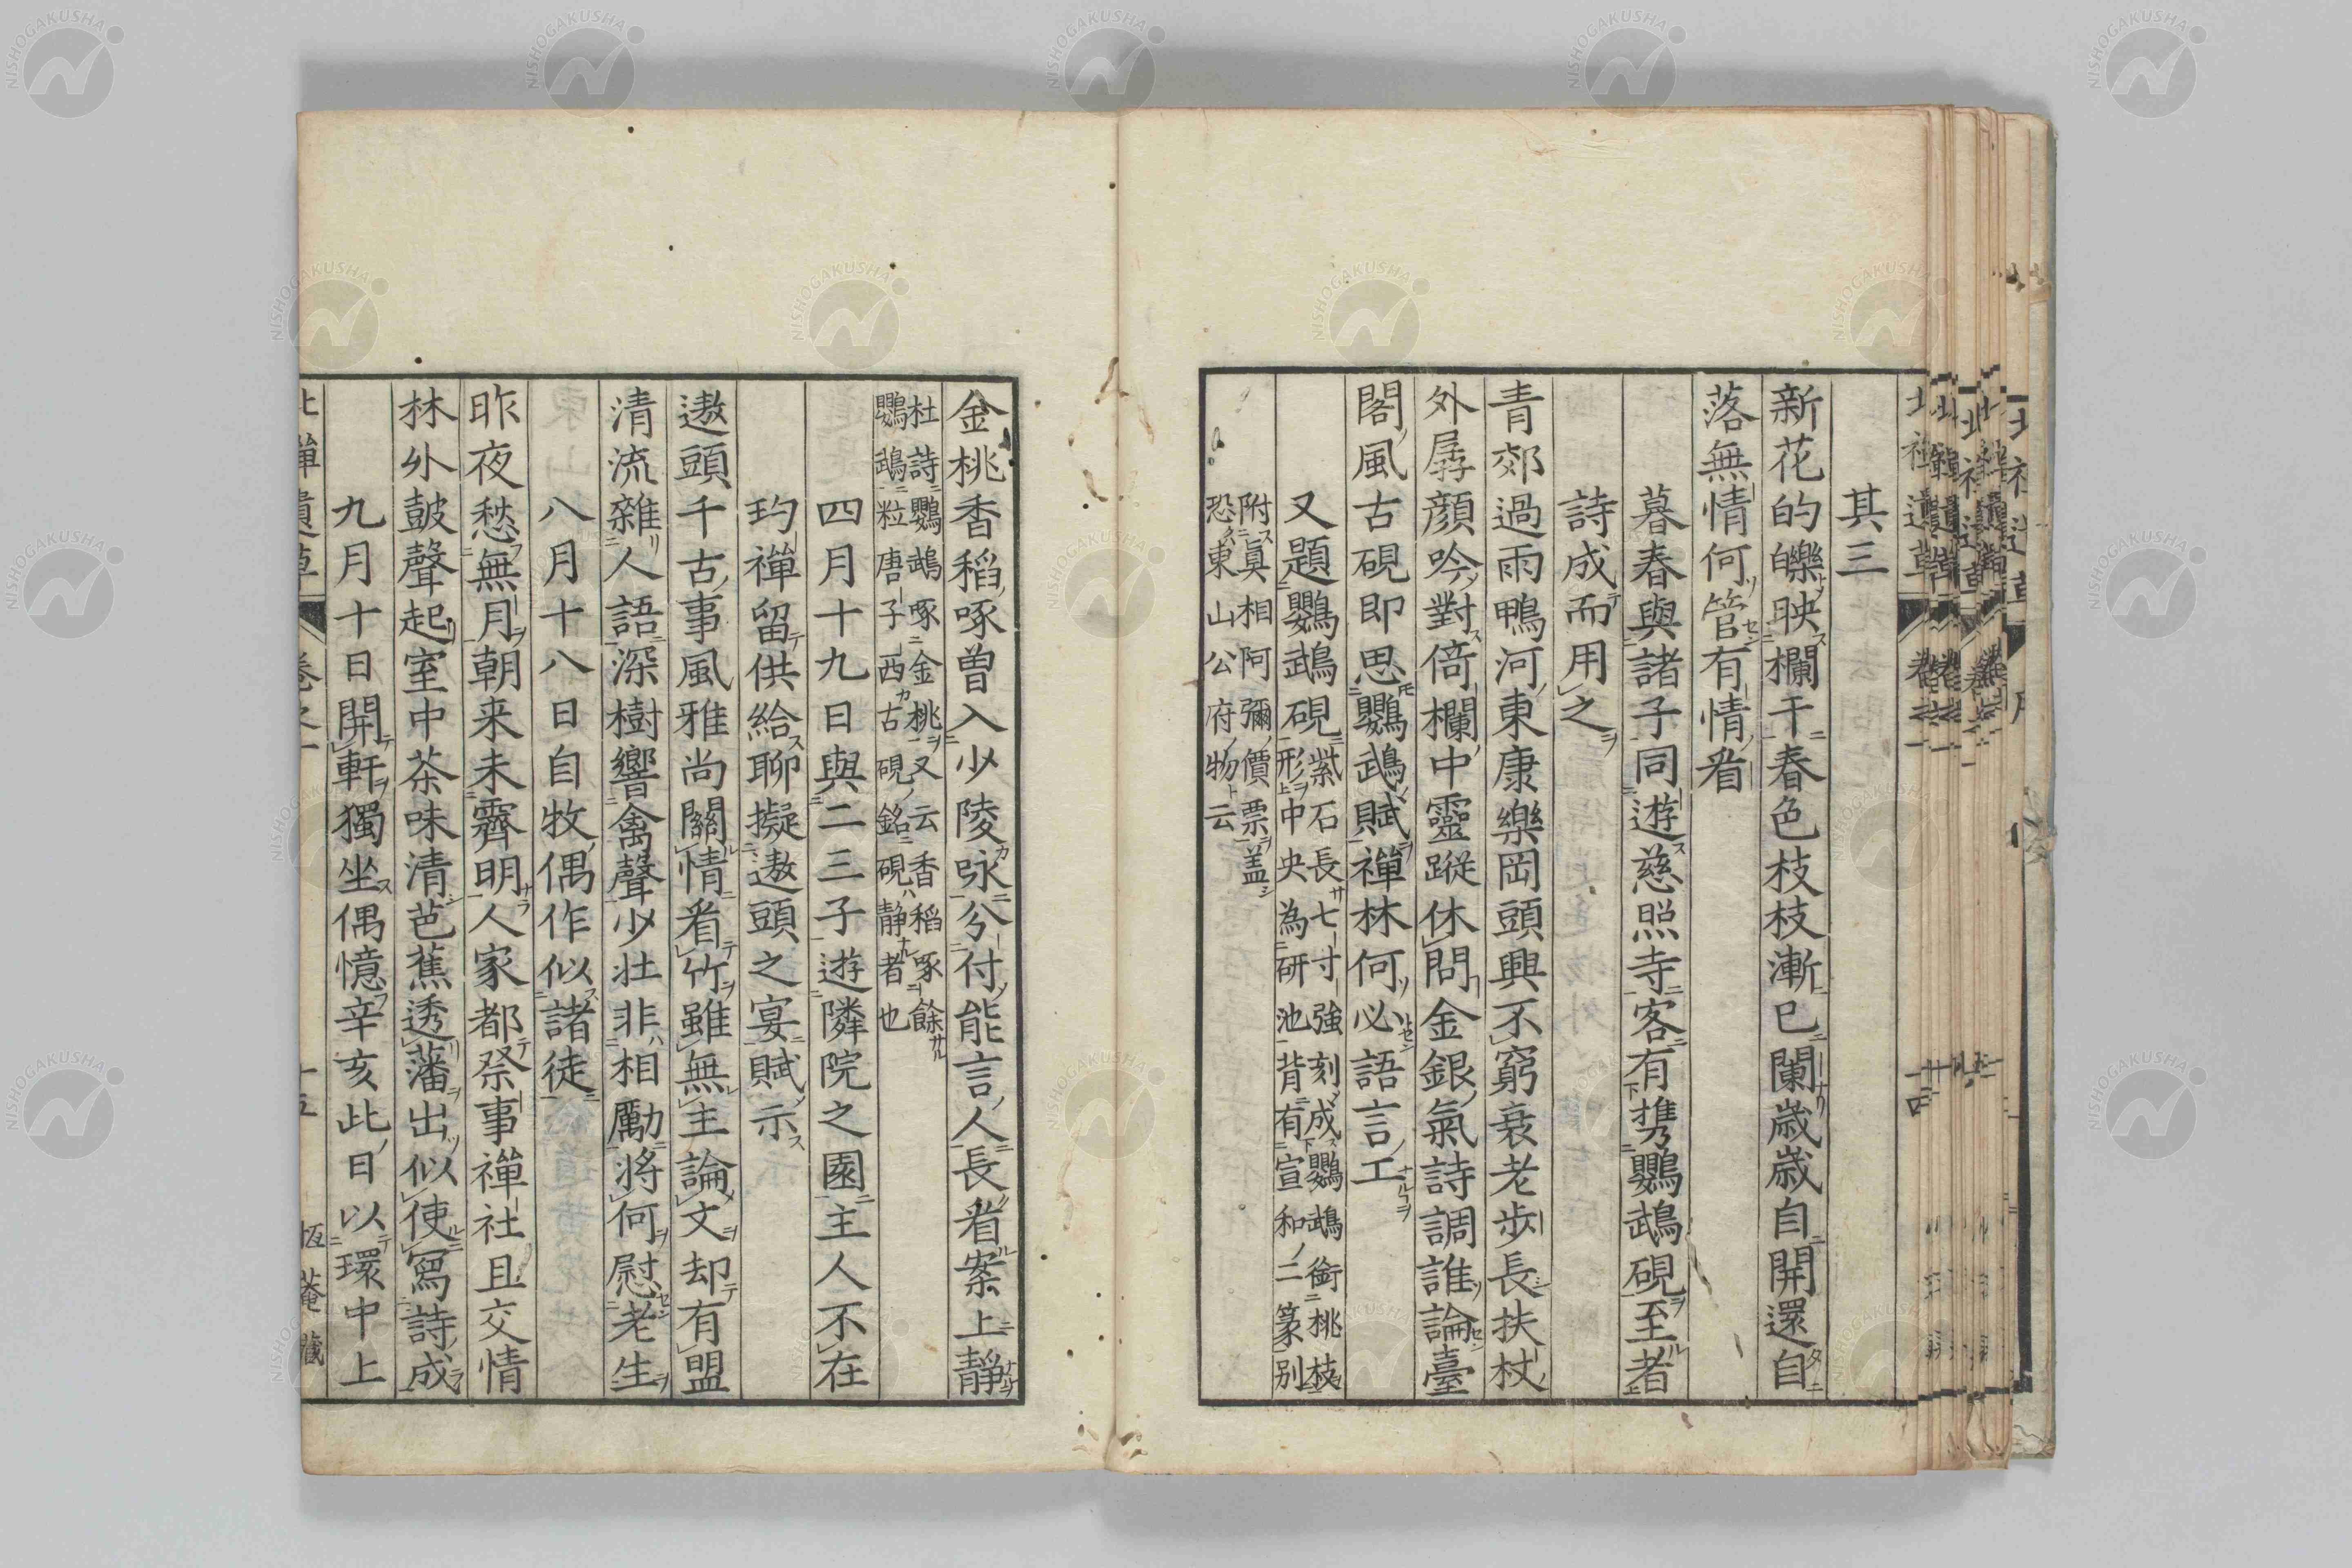 其三
新花的皪映欄干春色枝枝漸已闌歳歳自開還自
落無情何管有情看
暮春與諸子同遊慈照寺客有携鸚鵡硯至者
詩成而用之
青郊過雨鴨河東康樂岡頭興不窮衰老步長扶杖
外孱顔吟對倚欄中靈蹤休問金銀氣詩調誰論臺
閣風古硯即思鸚鵡賦禪林何必語言工
又題鸚鵡硯
紫石長七寸強刻成鸚鵡銜桃枝
形中央為研池背有宣和二篆別
附眞相阿彌價票盖
恐東山公府物云
金桃香稻啄曽入少陵咏兮付能言人長看案上靜
杜詩鸚鵡啄金桃又云香稻啄餘
鸚鵡粒唐子西古硯銘硯静者也
四月十九日與二三子遊隣院之園主人不在
玓禪留供給聊擬遨頭之宴賦示
遨頭千古事風雅尚關情看竹雖無主論文却有盟
清流雜人語深樹響禽聲少壮非相勵將何慰老生
八月十八日自牧偶作似諸徒
昨夜愁無月朝来未霽明人家都祭事禪社且交情
林外鼓聲起室中茶味清芭蕉透藩出似使寫詩成
九月十日開軒獨坐偶憶辛亥此日以環中上